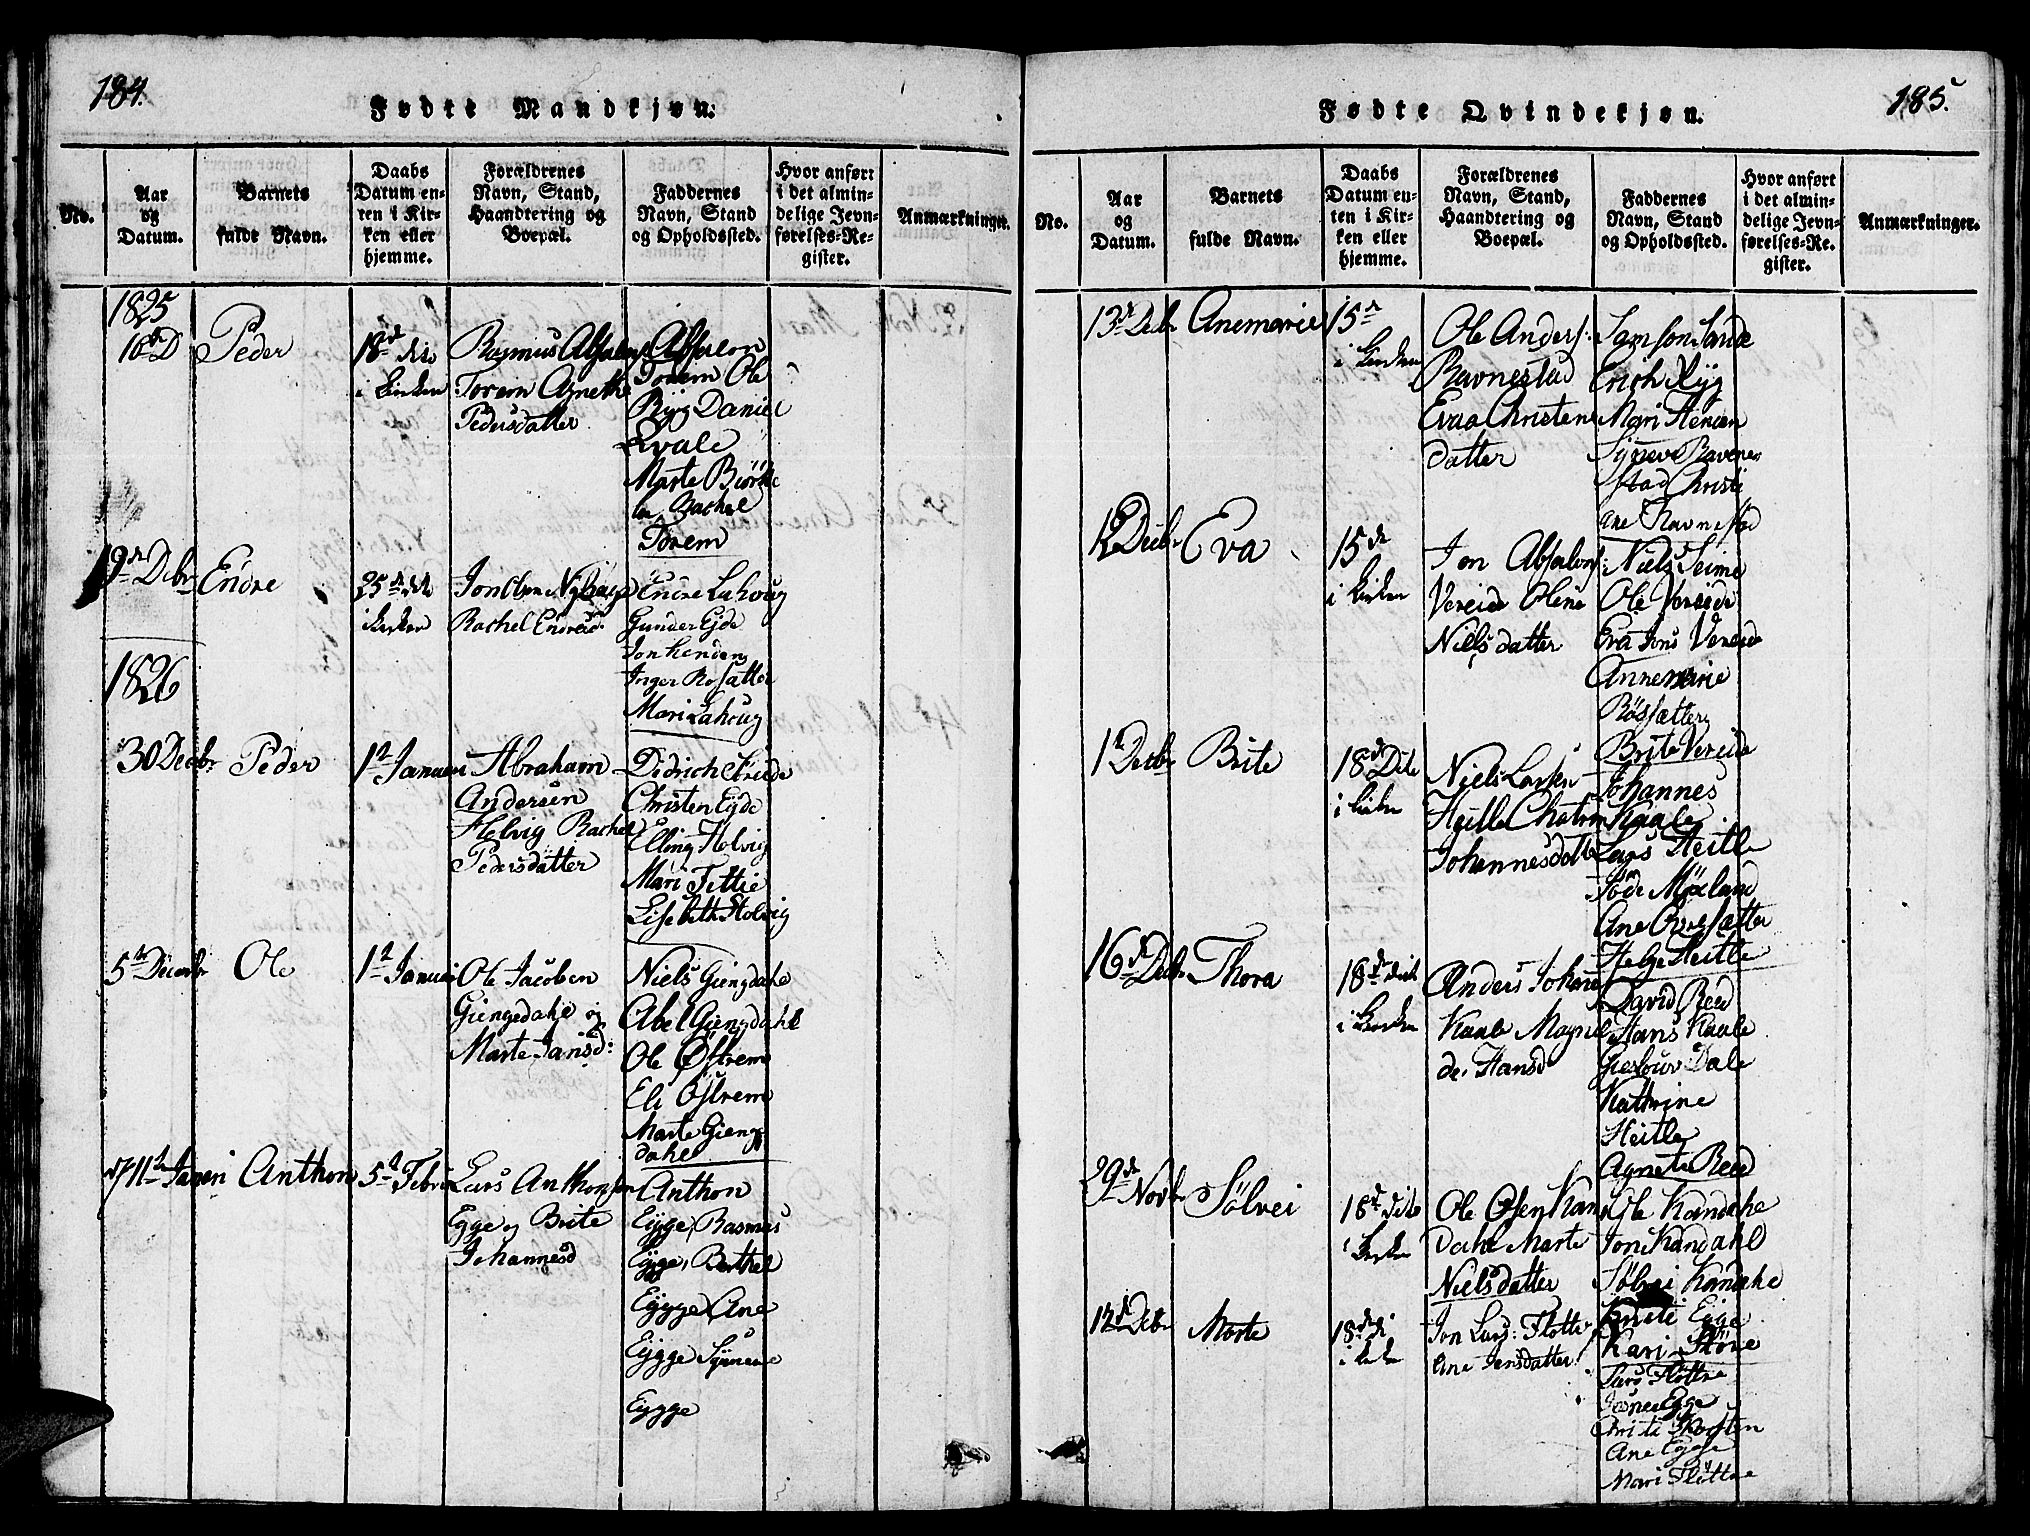 184.
Fødte Mandkjøn.
No.
Aar
og
Datum.
Barnets
fulde Navn.
Daabs
Datum en-
ten i Kir-
ken eller
hjemme.
Forældrenes
Navn, Stand,
Haandtering og
Boepæl.
Faddernes
Navn, Stand
og Opholdssted.
Hvor anført
i det almin-
delige Jevn-
førelses-Re-
gister.
Anmærkninger.
1825
Peder
18d
i Kirken
Rasmus Absalons
Torem Agnethe
Pedersdatter
Absalon
Torem Ole
Ryg Daniel
Qvale
Marte Biörke
Rachel
Torem
19de Debr
Endre
25de
i Kirken
Rachel Endresd
Endre Lahoug
Gunder Eyde
Jon Henden
Inger Rosatter
Mari Lahoug
1826
30 Decbr
Peder
1ste Januar
Abraham
Andersen
Helvig Rachel
Pedersdatter
Didrich
Christen Eyde
Elling Helvig
Mari Fettie
Lisebeth Helvig
5te Decembr
Ole
1ste Januar
Ole Jacobsen
Giengedahl og
Marte Jansd:
Niels Giengdahl
Abel Giengdahl
Ole Østrem
Eli Østrem
Marte Gieng
dahl
11te Januari
Anthon
5te Febru
Lars Anthonsen
Egge og Brite
Johannesd
Anthon
Eygge, Rasmus
Eygge, Berthel
Eygge, Ane
Eygge Synneve
Eygge
185.
Fødte Qvindekjøn.
No.
Aar
og
Datum.
Barnets
fulde Navn.
Daabs
Datum en-
ten i Kir-
ken eller
hjemme.
Forældrenes
Navn, Stand,
Haandtering og
Boepæl.
Faddernes
Navn, Stand
og Opholdssted.
Hvor anført
i det almin-
delige Jevn-
førelses-Re-
gister.
Anmærkninger.
13de Debr
Anemarie
15de
i Kirken
Ole Anders:
Ravnestad
Evaa Christens
datter
Samson Sande
Erich Ryg
Mari Henden
Synneve Ravne
stad Christi
ane Ravnestad
12 Decbr
Eva
15de
i Kirken
Jon Absalons:
Vereide Olene
Nielsdatter
Niels Seime
Ole Vereide
Eva Jons Vereide
Annemarie
Røssætter
Brite Vereide
1ste Decbr
Brite
18de Dito
i Kirken
Niels Larsen
Heitle Chatrin
Johannesdatter
Johannes
Kaale
Lars Heitle
Myland
Ane Øvresætter
Helge Heitle
16de Decbr
Thora
18de dito
i Kirken
Anders Johan
Kaale Magnil
de Hansd
David Reed
Hans Kaale
Dale
Kathrine
Heitle
Agnete Reed
29de
Novbr
Sølvei
18de Dito
i Kirken
Ole Olsen Kan
dahl Marte
Nielsdatter
Ole Kandahl
Jon Kandahl
Sølvei Kandahl
Egge
Kari Støve
12de Debr
Marte
18de
i Kirken
Jon Lars: Flotte
Ane Jensdatter
Lars Flottre
Egge
Christi
Ane Egge
Mari Flottre